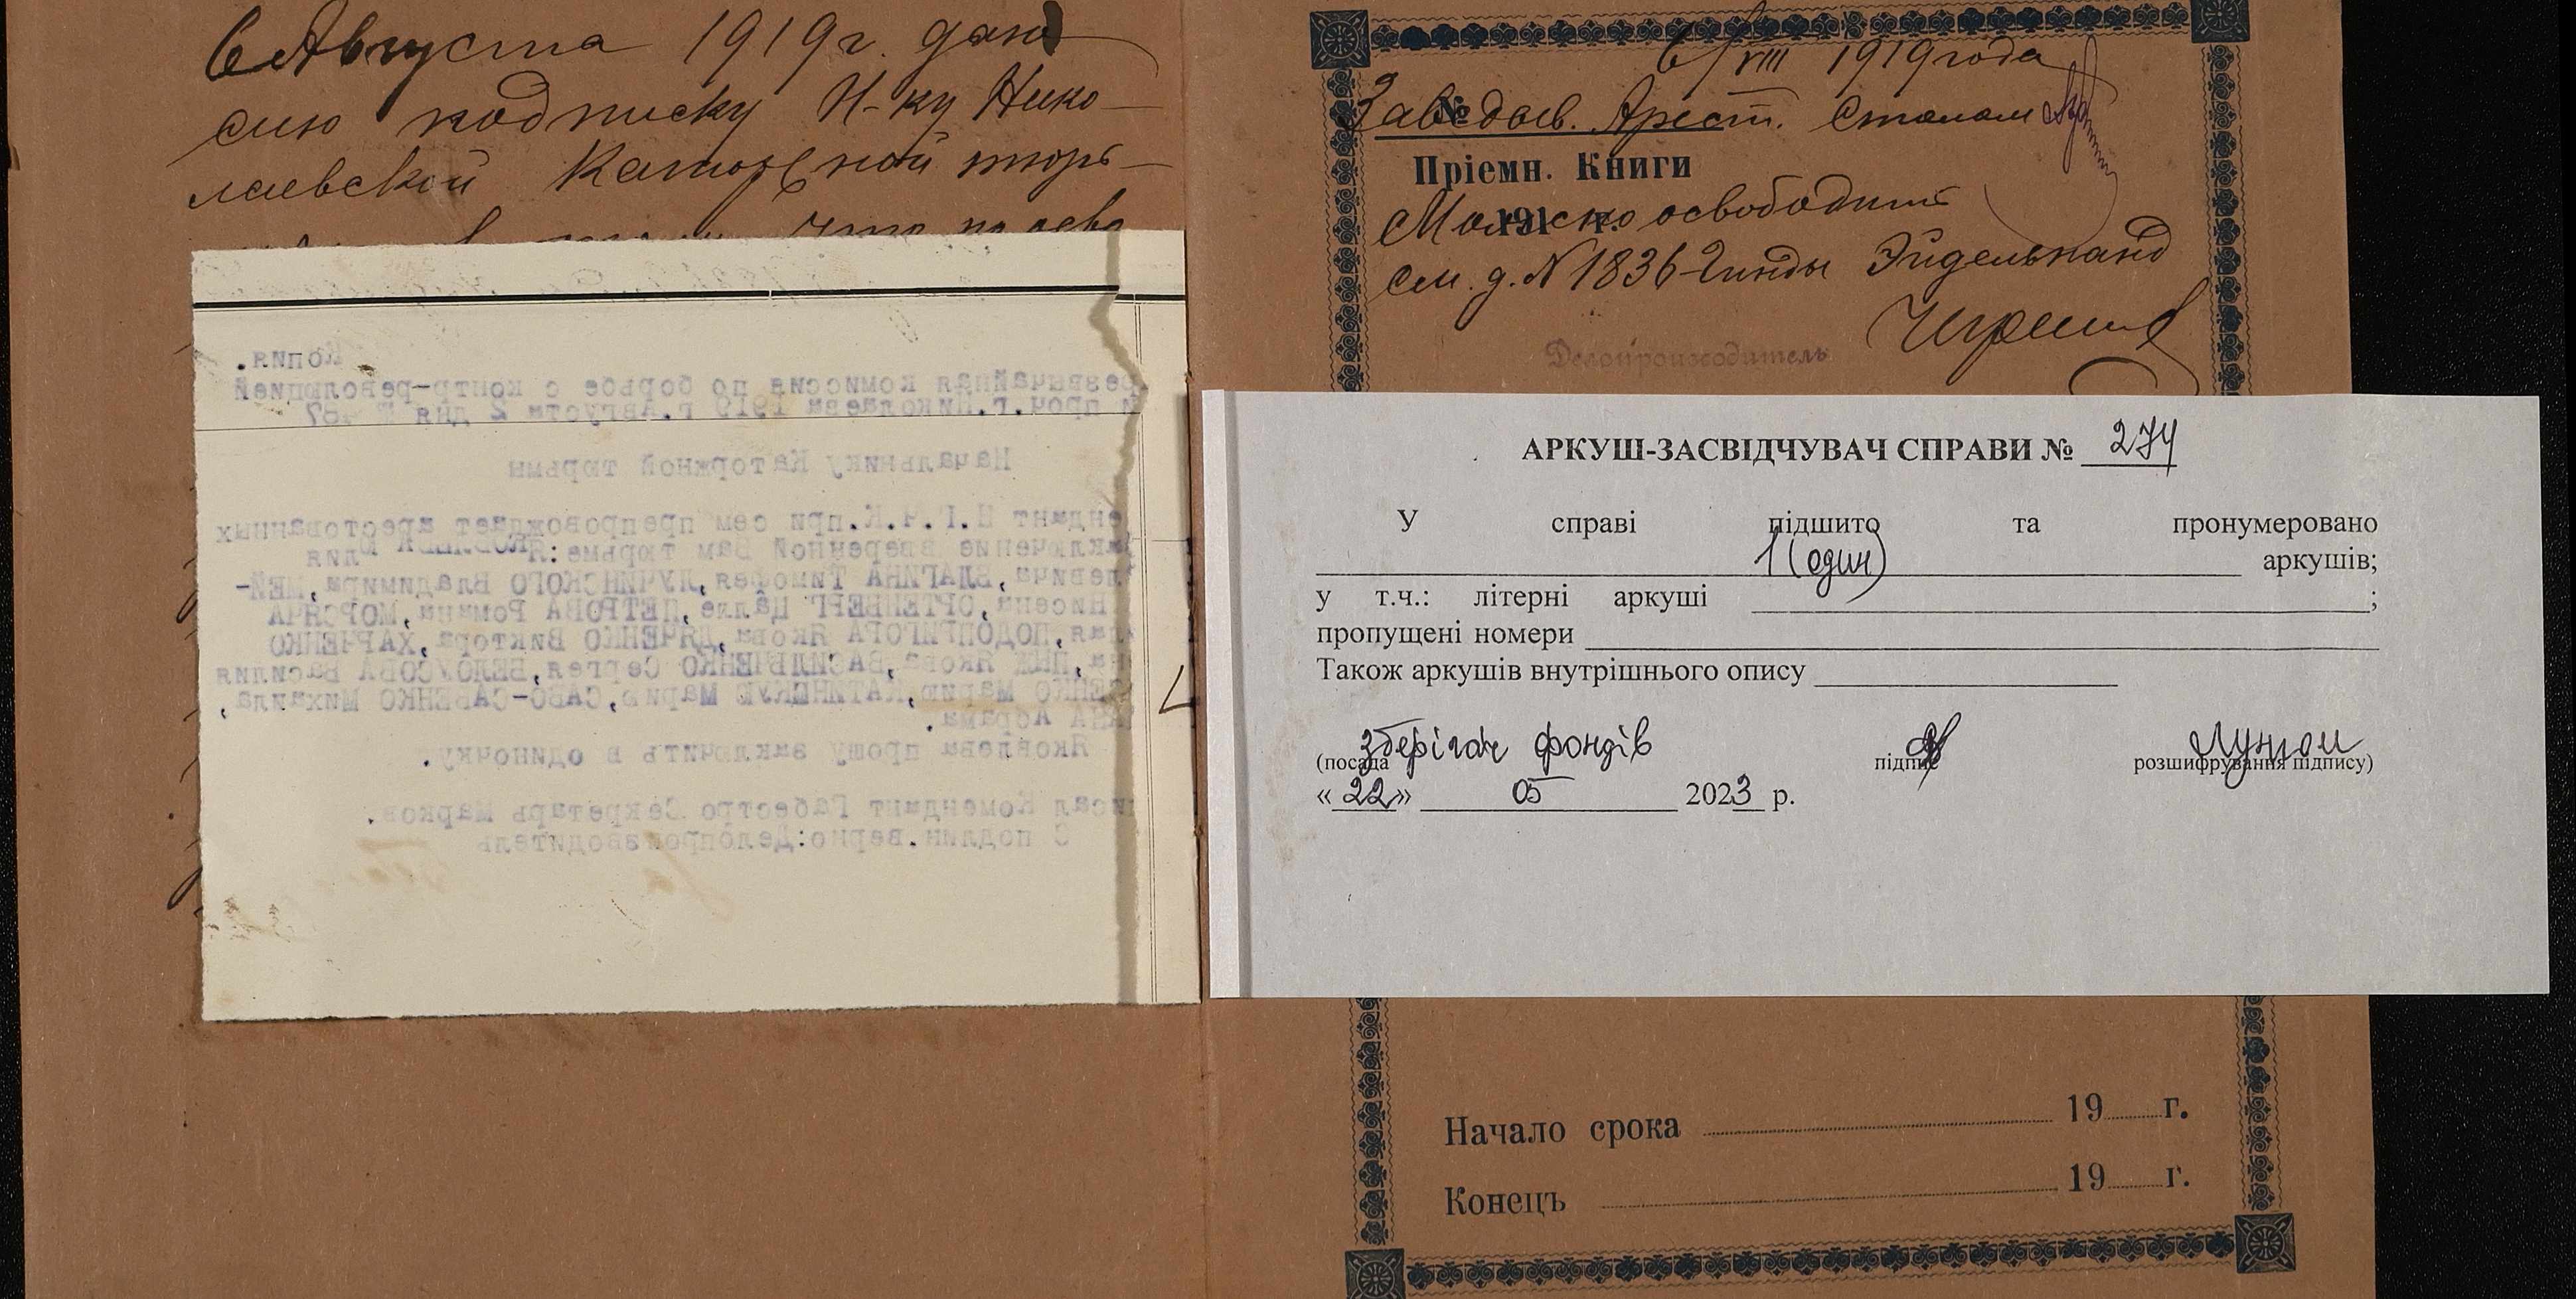 6 Августа 1919 г. дана
сию подписку Н-ку Нико-
лаевской Каторжной тюрь-
что по осво
Копия.
резвычайная комиссия по борьбе с контр-революцией
и проч.г.Николаева 1919 г.Августа 2 дня № 87
Начальнику Каторжной тюрьмы
ендант Н.Г.Ч.К.при сем препровождает арестованных
аключение вверенной Вам тюрьме:ЯКОВЛЕВА Юлия
левича,ЕЛАГИНА Тимофея,ЛУЧИНСКОГО Владимира,МЕЙ-
Нисена,ОРТЕНБЕРГ Цалле,ПЕТРОВА Романа,МОРГАЧА
ая,ПОДОПРИГОРА Якова,ДЯЧЕНКО Виктора,ХАРЧЕНКО
на,ПНЖ Якова,ВАСИЛЬЧЕНКО Сергея,БЕЛОУСОВА Василия
ЧЕНКО Марию,КАТИНЦКУЮ Марию,САВО-САВЕНКО Михаила,
КНА Абрама.
Яковлева прошу заключить в одиночку.
исал Комендант Габестро Секретарь Марков.
С подлин.верно:Делопроизводитель
6/VIII 1919 года
Заведыв. Арест. Столом
№
Пріемн. Книги
191 г.
Можно освободить
см. д. N 1836 Гинды Эйдельнанд
Делопроизводитель
АРКУШ-ЗАСВІДЧУВАЧ СПРАВИ № 274
У справі підшито та пронумеровано
1 (один) аркушів;
у т.ч.: літерні аркуші ;
пропущені номери
Також аркушів внутрішнього опису
зберігач фондів
(посада підпис розшифрування підпису)
« 22 » 05 2023 р.
Начало срока 19 г.
Конецъ 19 г.